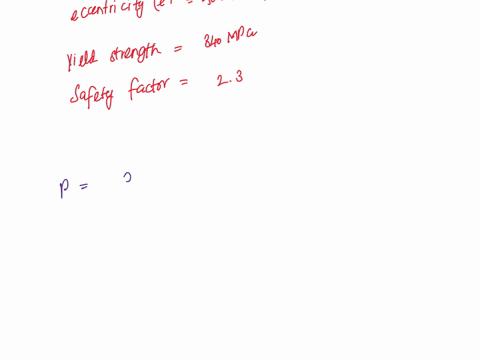 eccentricity (e) =
Yield strength = 340 MPa
Safety factor = 2.3
P =